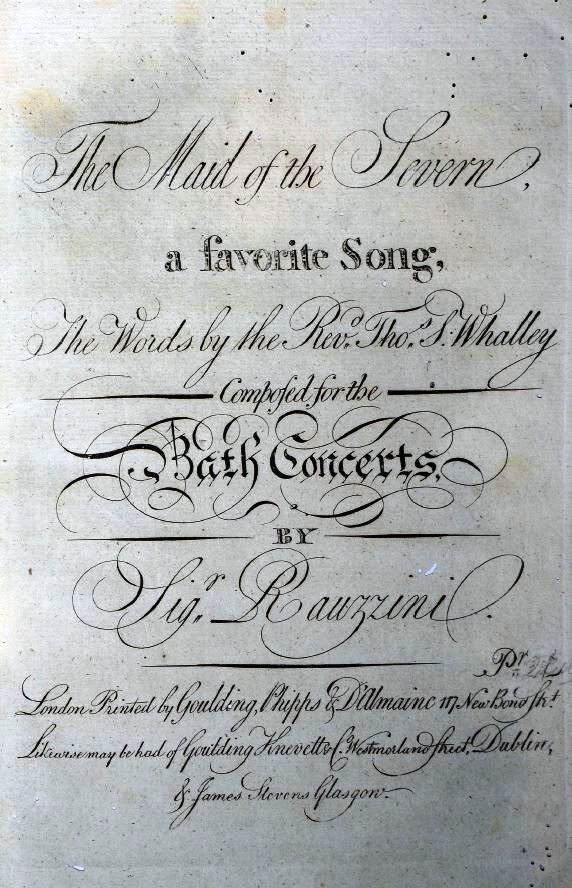 The Maid of the Severn,
a favorite Song,
The Words by the Revd. Thos. S. Whalley
Compoſed for the
Bath Concerts,
BY
Sigr. Rauzzini.
Pr.
London Printed by Goulding, Phipps & D'Almaine 117 New Bond Strt.
Likewise may be had of Goulding Knevett & Co. Westmorland Street, Dublin,
& James Stevens Glasgow.